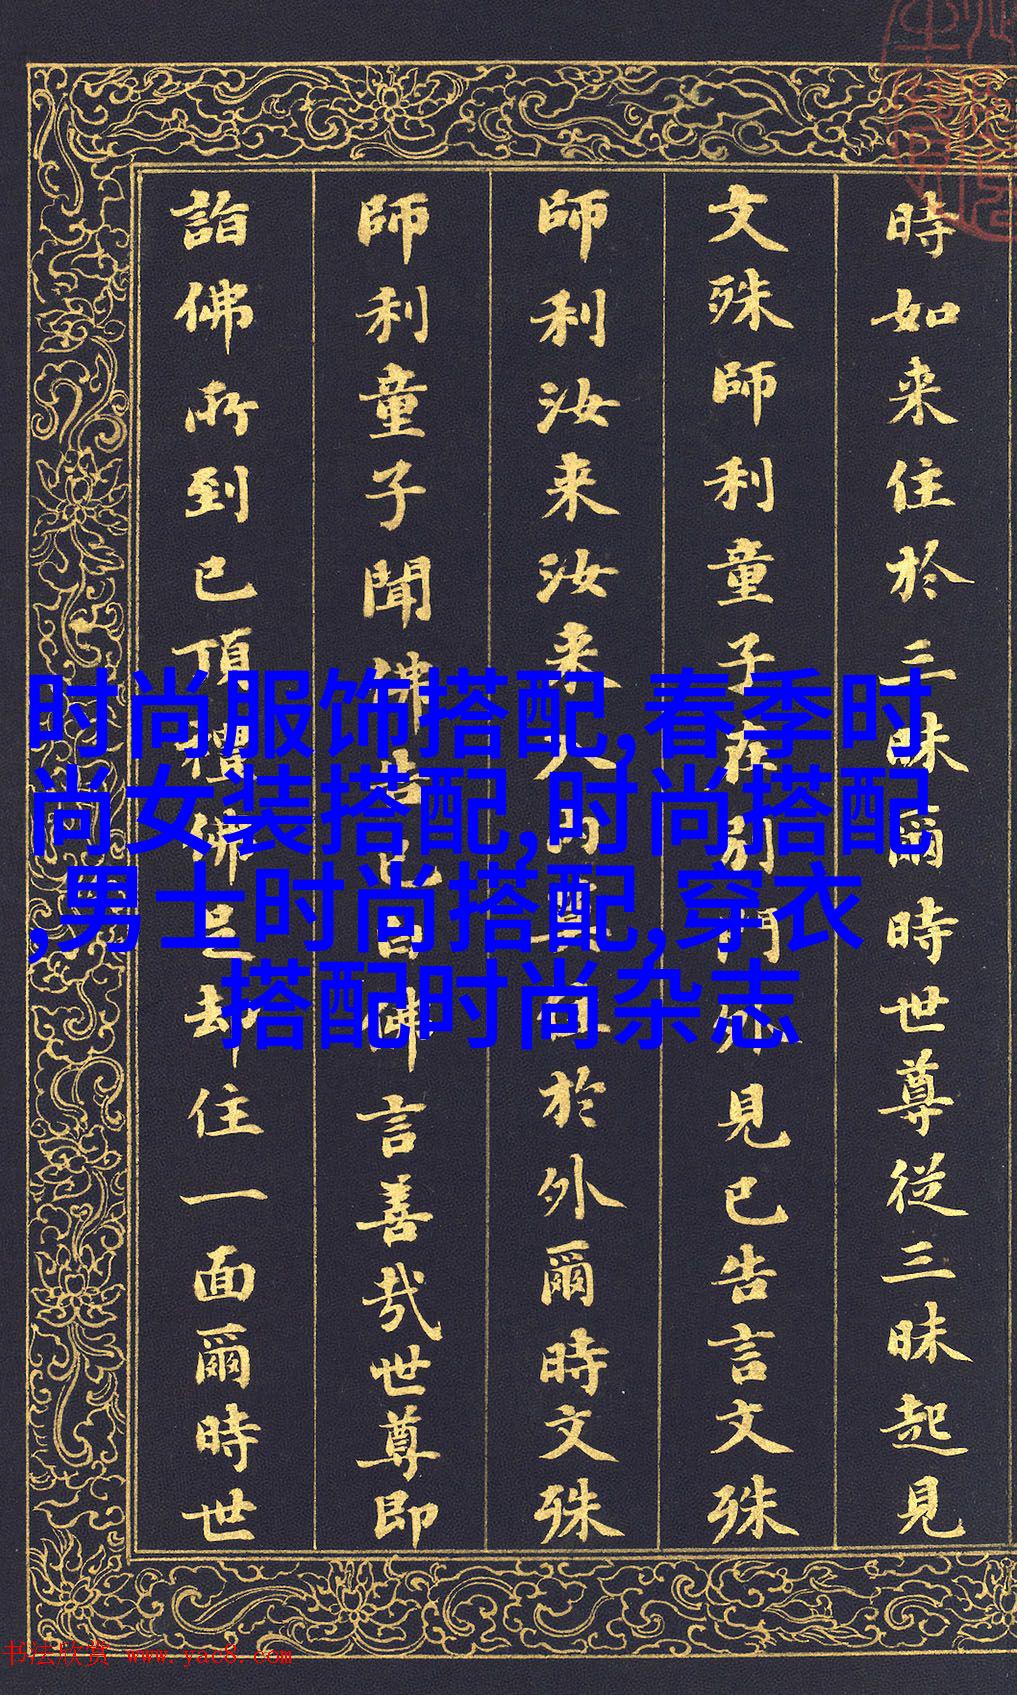 時如来住於三昧爾時世尊從三昧起見
文殊師利童子在別門外見已告言文殊
師利汝来汝来入内住於外爾時文殊
師利童子聞佛告已白佛言善哉世尊即
詣佛所到已頂禮佛足却住一面爾時世
时尚服饰搭配,春季时
尚女装搭配,时尚搭配
,男士时尚搭配,穿衣
搭配时尚杂志
书法欣赏 www.yac8.com